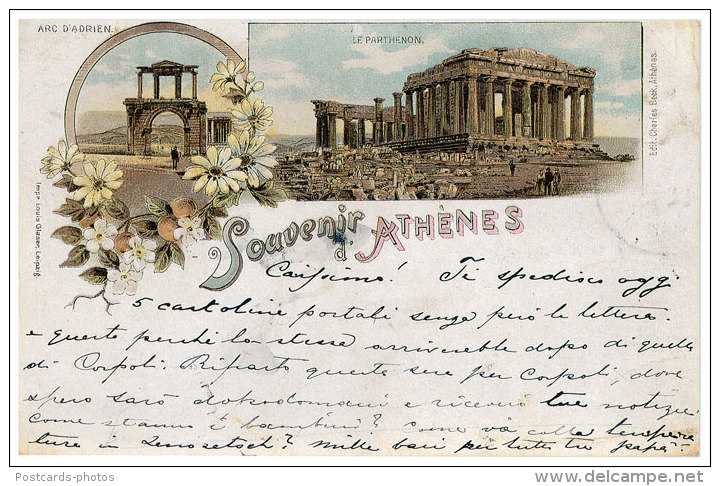 ARC D'ADRIEN.
LE PARTHÉNON.
Edit. Charles Beck, Athènes.
Impr. Louis Glaser, Leipzig
Souvenir d'ATHÈNES
Carissimo! Ti spedisco oggi
5 cartoline postali senza però le lettere.
e questo perché la stessa arriverebbe dopo di quella
di Corfoli. Riparto questa sera per Corfoli, dove
spero sarò dopodomani e ricevere tue notizie.
Come stanno i bambini? Come va colla tempera
tura in ? Mille baci per tutti tuo papà.
Postcards-photos
©delcampe.net